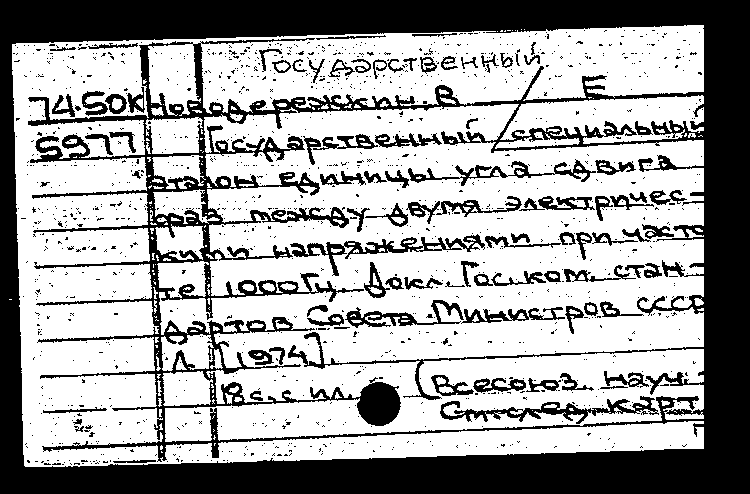 Государственный
74-50К Новодережкин, В Е
5977 Государственный / специальный
эталон единицы угла сдвига
фаз между двумя электричес-
кими напряжениями при часто
те 1000 Гц. Докл. Гос. ком. стан-
дартов Совета Министров СССР
Л., [1974].
18 с. с ил. (Всесоюз. науч.-
См. след. карт